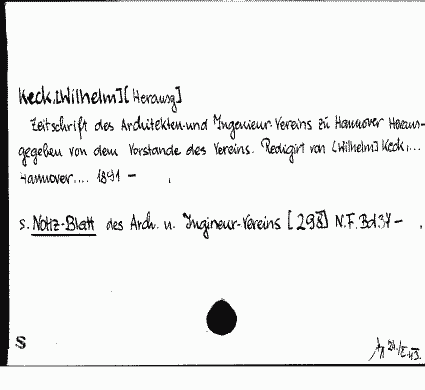 Keck, [Wilhelm] [Herausg]
Zeitschrift des Architekten-und Ingenieur-Vereins zu Hannover Heraus-
gegeben von dem Vorstande des Vereins. Redigirt von [Wilhelm] Keck,...
Hannover.... 1891 —
s. Notiz-Blatt des Arch. u. Ingineur-Vereins [298] N.F. Bd.37 —
S